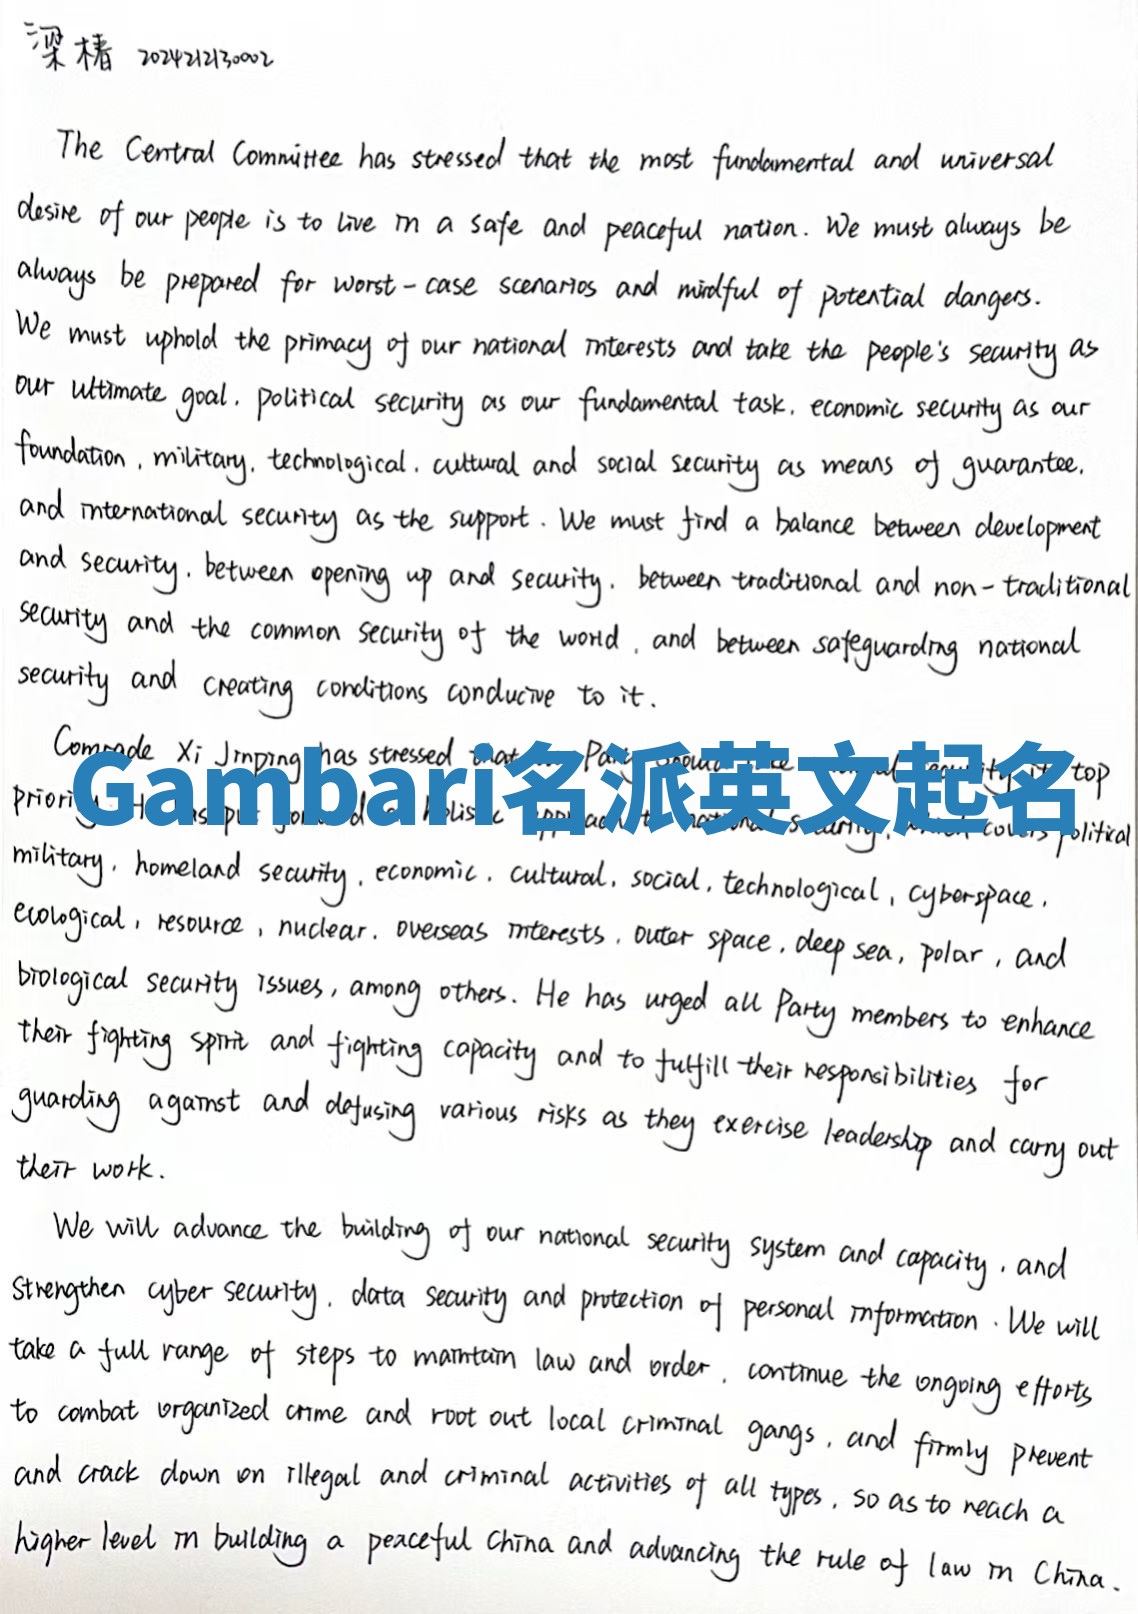 梁椿 2024212130002
The Central Committee has stressed that the most fundamental and universal
desire of our people is to live in a safe and peaceful nation. We must always be
always be prepared for worst-case scenarios and mindful of potential dangers.
We must uphold the primacy of our national interests and take the people's security as
our ultimate goal, political security as our fundamental task, economic security as our
foundation, military, technological, cultural and social security as means of guarantee,
and international security as the support. We must find a balance between development
and security, between opening up and security, between traditional and non-traditional
security and the common security of the world, and between safeguarding national
security and creating conditions conducive to it.
Comrade Xi Jinping has stressed that Party top
Gambari名派英文起名
political
military, homeland security, economic, cultural, social, technological, cyberspace,
ecological, resource, nuclear, overseas interests, outer space, deep sea, polar, and
biological security issues, among others. He has urged all Party members to enhance
their fighting spirit and fighting capacity and to fulfill their responsibilities for
guarding against and defusing various risks as they exercise leadership and carry out
their work.
We will advance the building of our national security system and capacity, and
strengthen cyber security, data security and protection of personal information. We will
take a full range of steps to maintain law and order, continue the ongoing efforts
to combat organized crime and root out local criminal gangs, and firmly prevent
and crack down on illegal and criminal activities of all types, so as to reach a
higher level in building a peaceful China and advancing the rule of law in China.